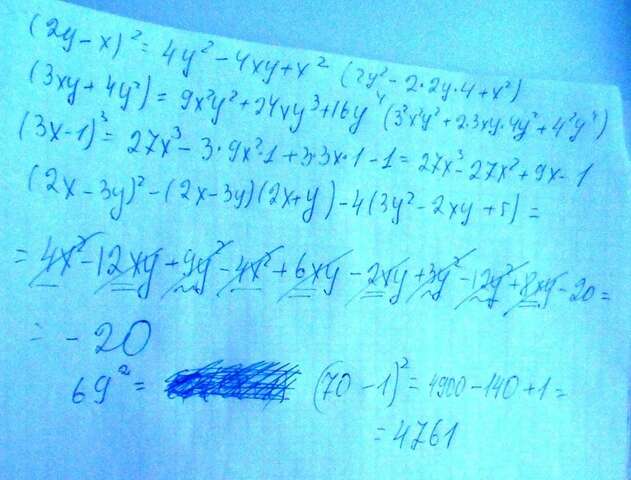 (2y-x)² = 4y² - 4xy + x² (2y² - 2·2y·4 + x²)
(3xy + 4y²) = 9x²y² + 24xy³ + 16y⁴ (3²x²y² + 2·3xy·4y² + 4²y⁴)
(3x-1)³ = 27x³ - 3·9x²·1 + 3·3x·1 - 1 = 27x³ - 27x² + 9x - 1
(2x - 3y)² - (2x - 3y)(2x + y) - 4(3y² - 2xy + 5) =
= 4x² - 12xy + 9y² - 4x² + 6xy - 2xy + 3y² - 12y² + 8xy - 20 =
= -20
69² = (70 - 1)² = 4900 - 140 + 1 =
= 4761